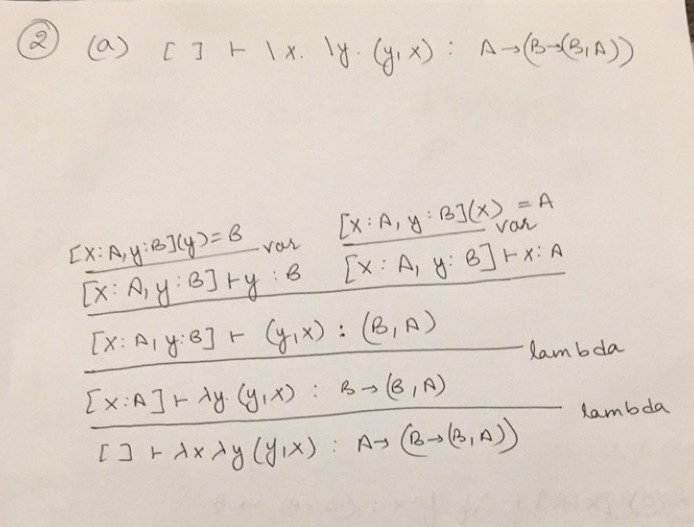 ② (a) [ ] ⊢ \x. \y. (y, x) : A → (B → (B, A))
[x: A, y: B](y) = B var [x: A, y: B](x) = A var
[x: A, y: B] ⊢ y : B [x: A, y: B] ⊢ x: A
[x: A, y: B] ⊢ (y, x) : (B, A)
lambda
[x: A] ⊢ λy. (y, x) : B → (B, A)
lambda
[ ] ⊢ λx λy (y, x) : A → (B → (B, A))